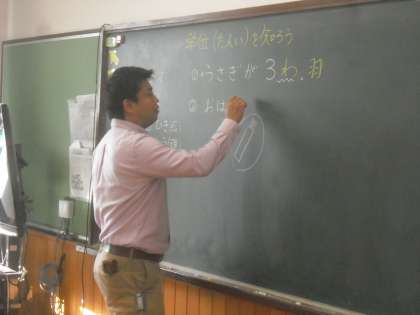 単位(たんい)を知ろう
①うさぎが 3わ.羽
②おは